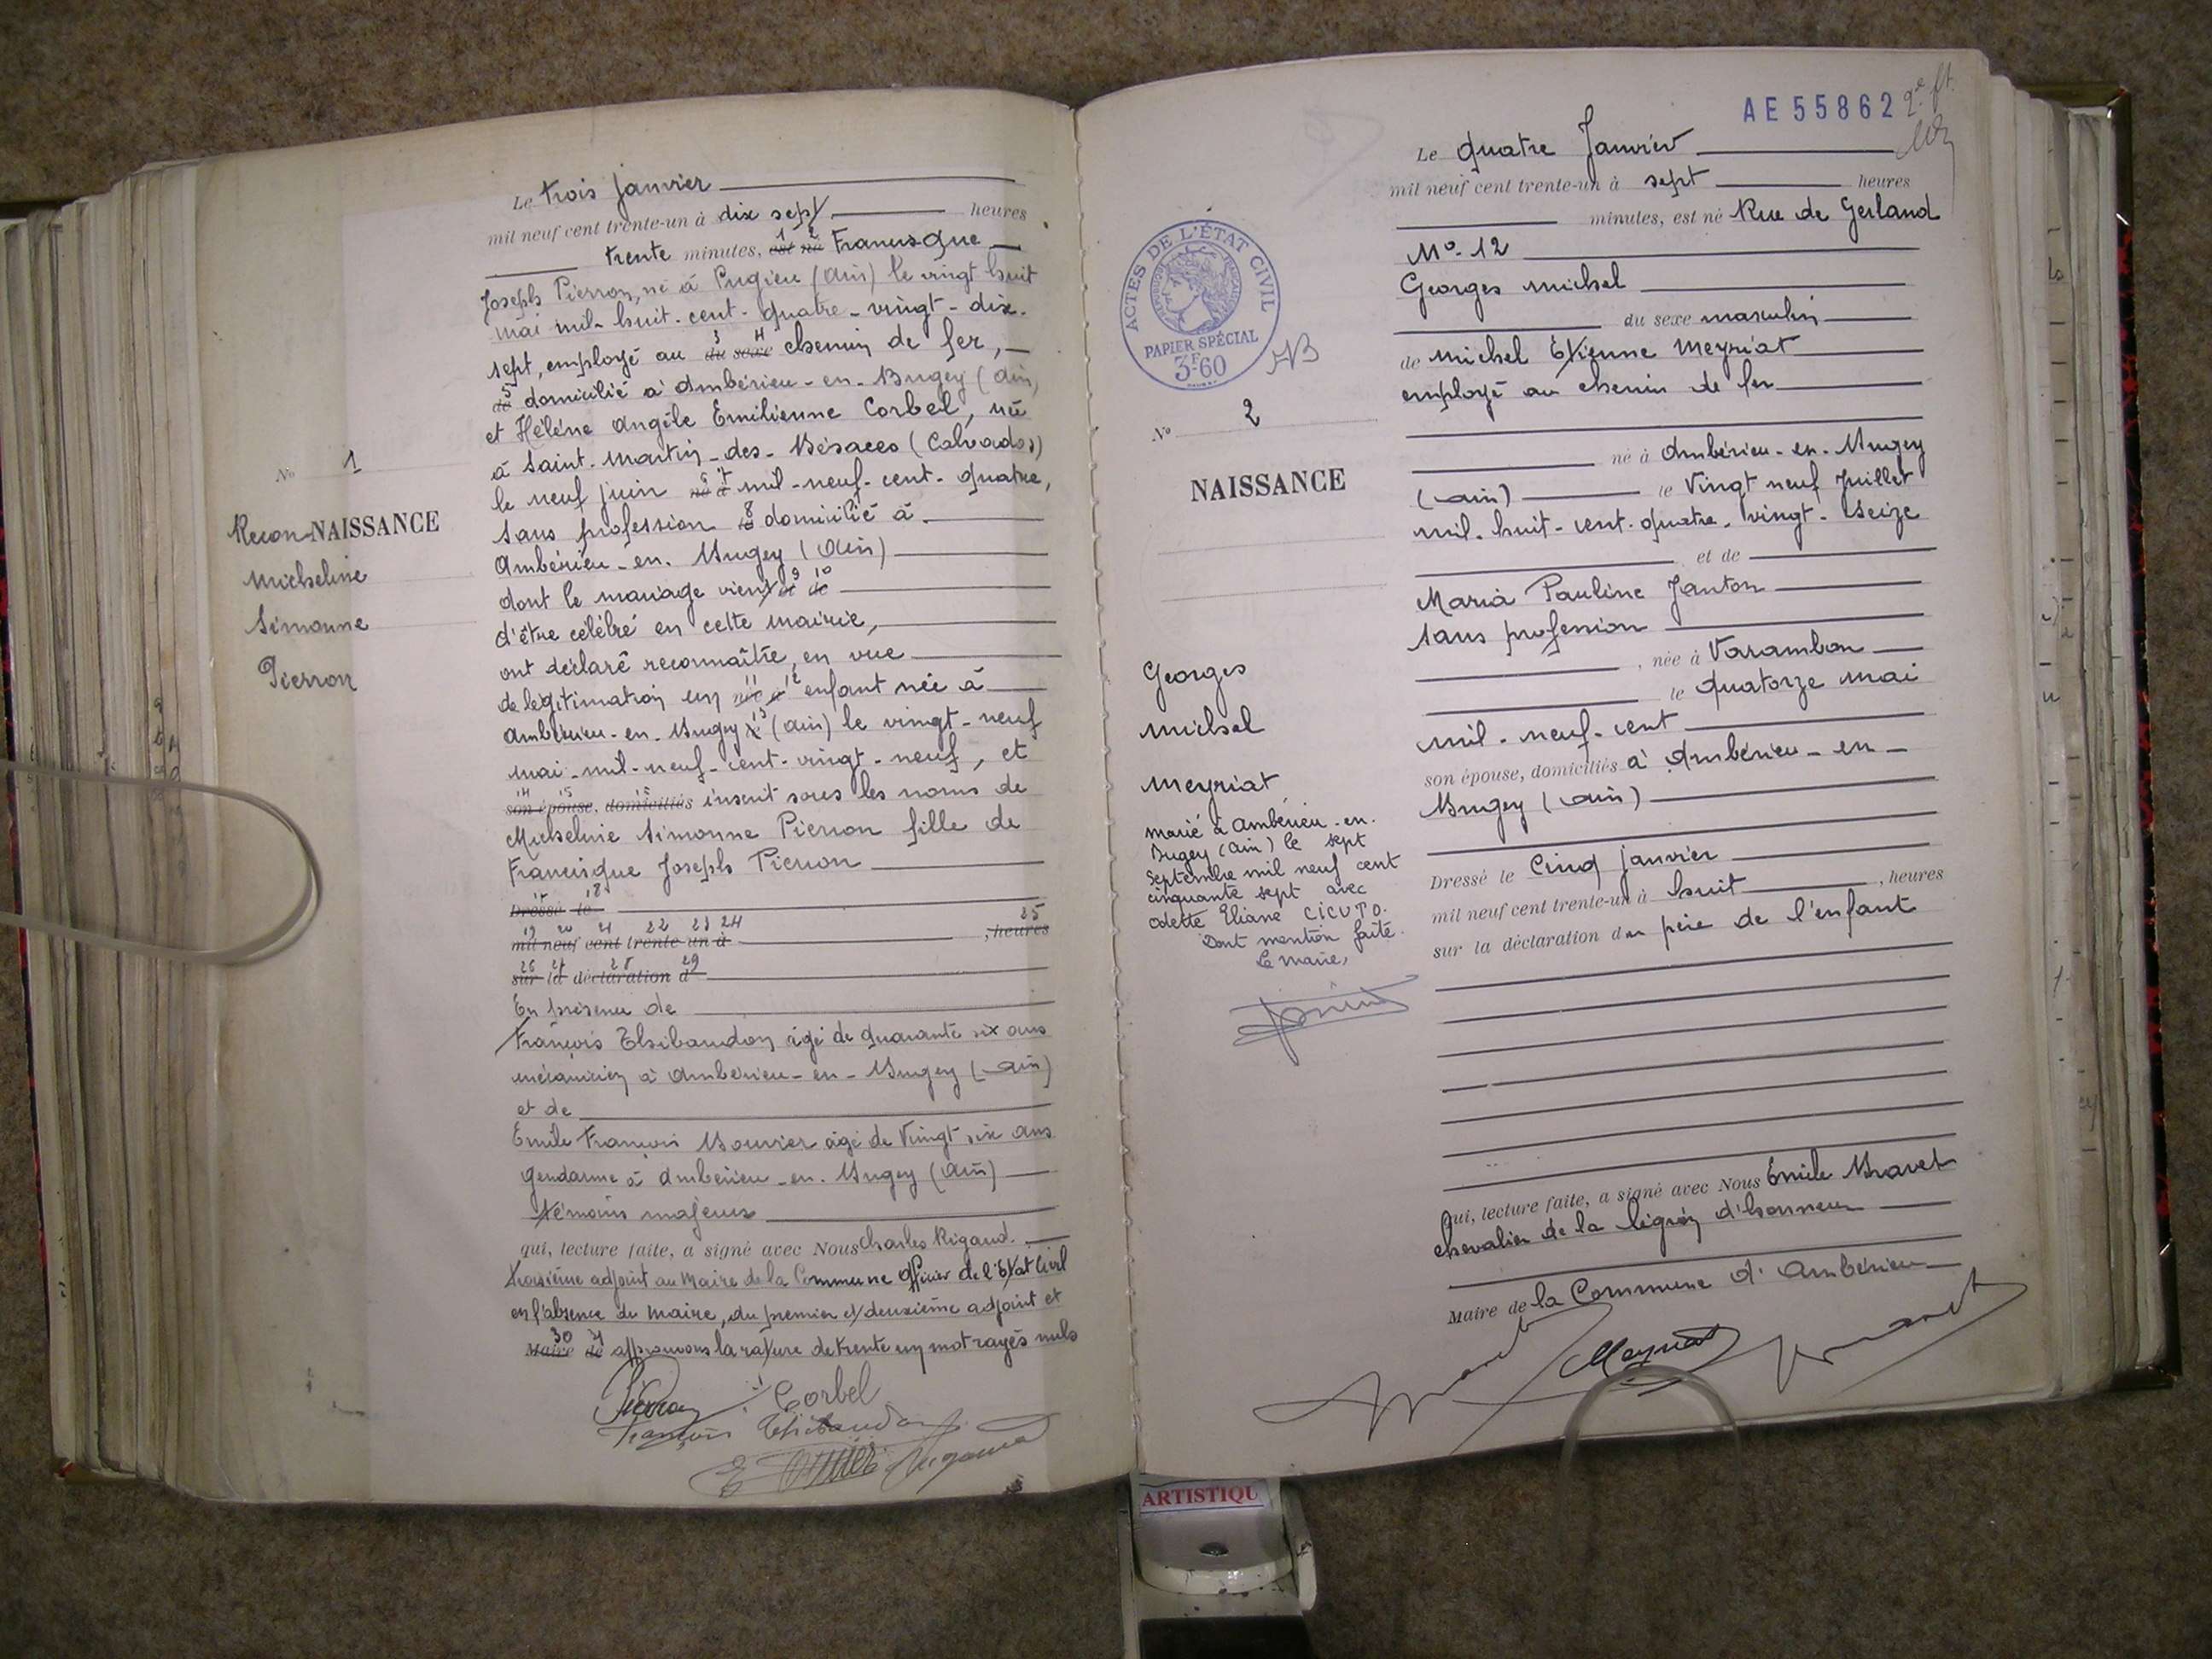 No 1
Recon-NAISSANCE
Micheline
Simonne
Pierron
Le trois Janvier
mil neuf cent trente-un à dix sept heures
trente minutes, est né Francisque
Joseph Pierron, né à Pugieu (Ain) le vingt huit
mai mil-huit-cent-quatre-vingt-dix-
sept, employé au du sexe chemin de fer,
de domicilié à Ambérieu-en-Bugey (Ain)
et Hélène Angèle Emilienne Corbel, née
à Saint-Martin-des-Besaces (Calvados)
le neuf juin né à mil-neuf-cent-quatre,
sans profession le domicilié à
Ambérieu-en-Bugey (Ain)
dont le mariage vient et de
d'être célébré en cette mairie,
ont déclaré reconnaître, en vue
de légitimation un née à enfant née à
Ambérieu-en-Bugey le (Ain) le vingt-neuf
mai-mil-neuf-cent-vingt-neuf, et
son épouse, domiciliés inscrit sous les noms de
Micheline Simonne Pierron fille de
Francisque Joseph Pierron
Dressé le
mil neuf cent trente-un à , heures
sur la déclaration d
En présence de
François Thibaudon âgé de quarante six ans
mécanicien à Ambérieu-en-Bugey (Ain)
et de
Emile François Bouvier âgé de vingt six ans
gendarme à Ambérieu-en-Bugey (Ain)
témoins majeurs
qui, lecture faite, a signé avec Nous Charles Rigaud.
troisième adjoint au Maire de la Commune officier de l'Etat Civil
en l'absence du Maire, du premier et deuxième adjoint et
Maire de approuvons la rature de trente un mot rayés nuls
Pierron Corbel
François Thibaudon
E Bouvier Rigaud
AE 55862
ACTES DE L'ÉTAT CIVIL
PAPIER SPÉCIAL
3F60
No 2
NAISSANCE
Georges
Michel
Meyriat
marié à Ambérieu-en-
Bugey (Ain) le sept
septembre mil neuf cent
cinquante sept avec
Odette Eliane CICUTO.
Dont mention faite.
Le Maire,
Le quatre Janvier
mil neuf cent trente-un à sept heures
minutes, est né Rue de Gerland
No 12
Georges Michel
du sexe masculin
de Michel Etienne Meyriat
employé au chemin de fer
né à Ambérieu-en-Bugey
(Ain) le Vingt neuf Juillet
mil-huit-cent-quatre-vingt-seize
et de
Maria Pauline Janton
sans profession
, née à Varambon
le quatorze mai
mil-neuf-cent
son épouse, domiciliés à Ambérieu-en-
Bugey (Ain)
Dressé le Cinq janvier
mil neuf cent trente-un à huit , heures
sur la déclaration du père de l'enfant
qui, lecture faite, a signé avec Nous Emile Bravet
chevalier de la légion d'honneur
Maire de la Commune d'Ambérieu
Meyriat
ARTISTIQU